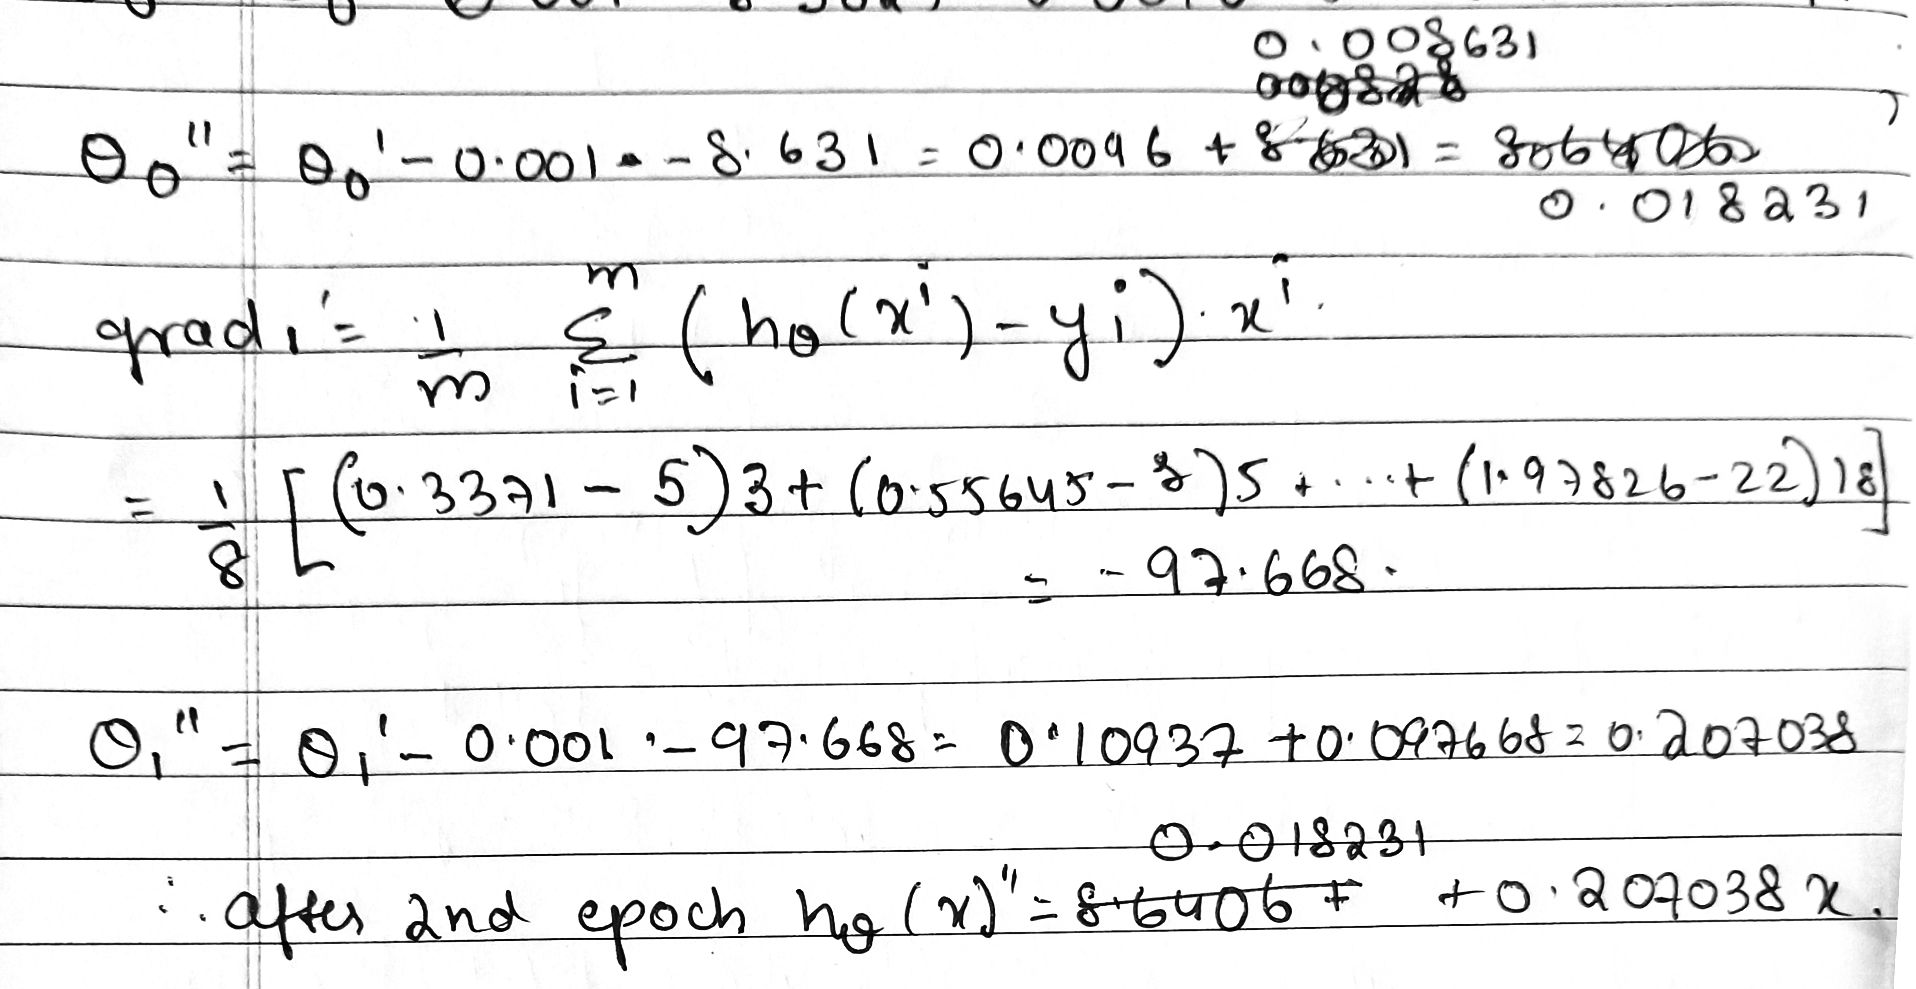 0.008631
θ₀'' = θ₀' - 0.001 · -8.631 = 0.0096 + = 
0.018231
grad₁' = 1/m Σ_{i=1}^{m} (hθ(xⁱ) - yi) · xⁱ.
= 1/8 [(0.3371 - 5)3 + (0.55645 - 8)5 + ... + (1.97826 - 22)18]
= -97.668.
θ₁'' = θ₁' - 0.001 · -97.668 = 0.10937 + 0.097668 = 0.207038
0.018231
∴ after 2nd epoch hθ(x)'' = 8.6406 + + 0.207038 x.